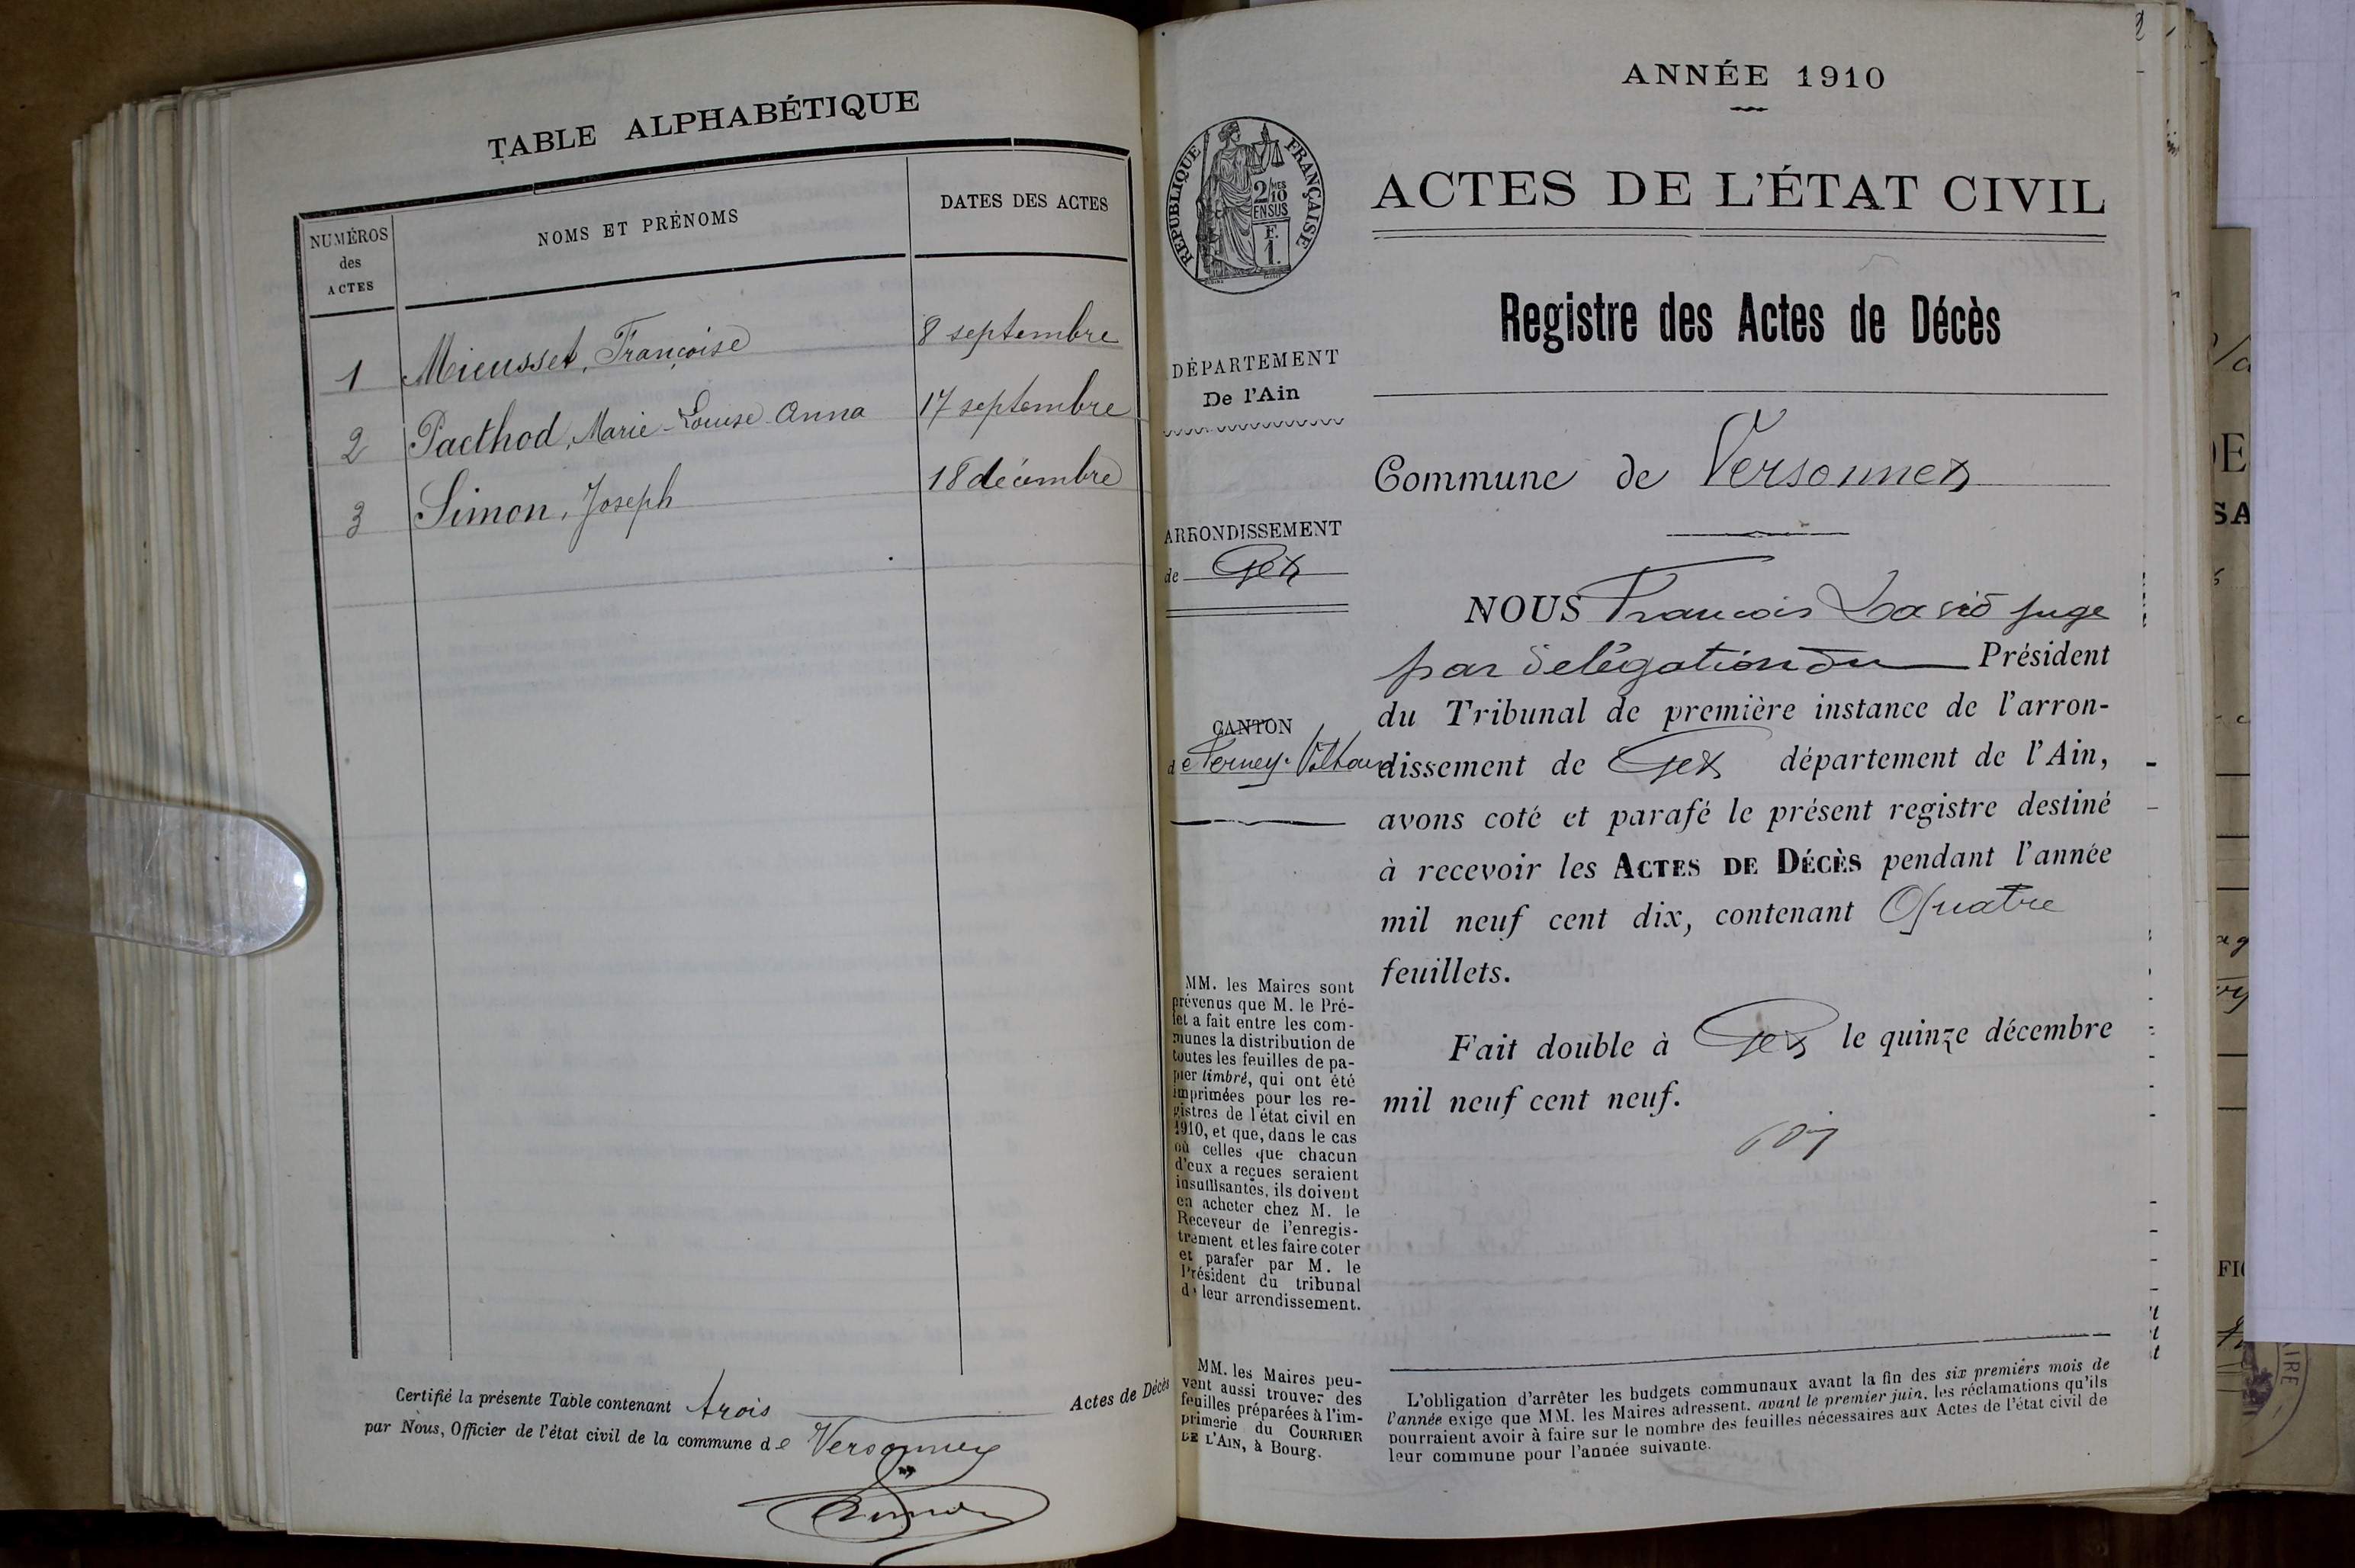 TABLE ALPHABÉTIQUE
NUMÉROS
des
ACTES
NOMS ET PRÉNOMS
DATES DES ACTES
1 Mieusset, Françoise 8 septembre
2 Pacthod, Marie-Louise-Anna 17 septembre
3 Simon, Joseph 18 décembre
Certifié la présente Table contenant trois Actes de Décès
par Nous, Officier de l'état civil de la commune de Versonnex
ANNÉE 1910
RÉPUBLIQUE FRANÇAISE
2/10
MES
EN SUS
F.
1.
ACTES DE L'ÉTAT CIVIL
Registre des Actes de Décès
DÉPARTEMENT
De l'Ain
Commune de Versonnex
ARRONDISSEMENT
de Gex
CANTON
de Ferney-Voltaire
NOUS François David juge
par délégation du Président
du Tribunal de première instance de l'arron-
dissement de Gex département de l'Ain,
avons coté et parafé le présent registre destiné
à recevoir les ACTES DE DÉCÈS pendant l'année
mil neuf cent dix, contenant Quatre
feuillets.
Fait double à Gex le quinze décembre
mil neuf cent neuf.
MM. les Maires sont
prévenus que M. le Pré-
fet a fait entre les com-
munes la distribution de
toutes les feuilles de pa-
pier timbré, qui ont été
imprimées pour les re-
gistres de l'état civil en
1910, et que, dans le cas
où celles que chacun
d'eux a reçues seraient
insuffisantes, ils doivent
en acheter chez M. le
Receveur de l'enregis-
trement et les faire coter
et parafer par M. le
Président du tribunal
de leur arrondissement.
MM. les Maires peu-
vent aussi trouver des
feuilles préparées à l'im-
primerie du COURRIER
DE L'AIN, à Bourg.
L'obligation d'arrêter les budgets communaux avant la fin des six premiers mois de
l'année exige que MM. les Maires adressent, avant le premier juin, les réclamations qu'ils
pourraient avoir à faire sur le nombre des feuilles nécessaires aux Actes de l'état civil de
leur commune pour l'année suivante.